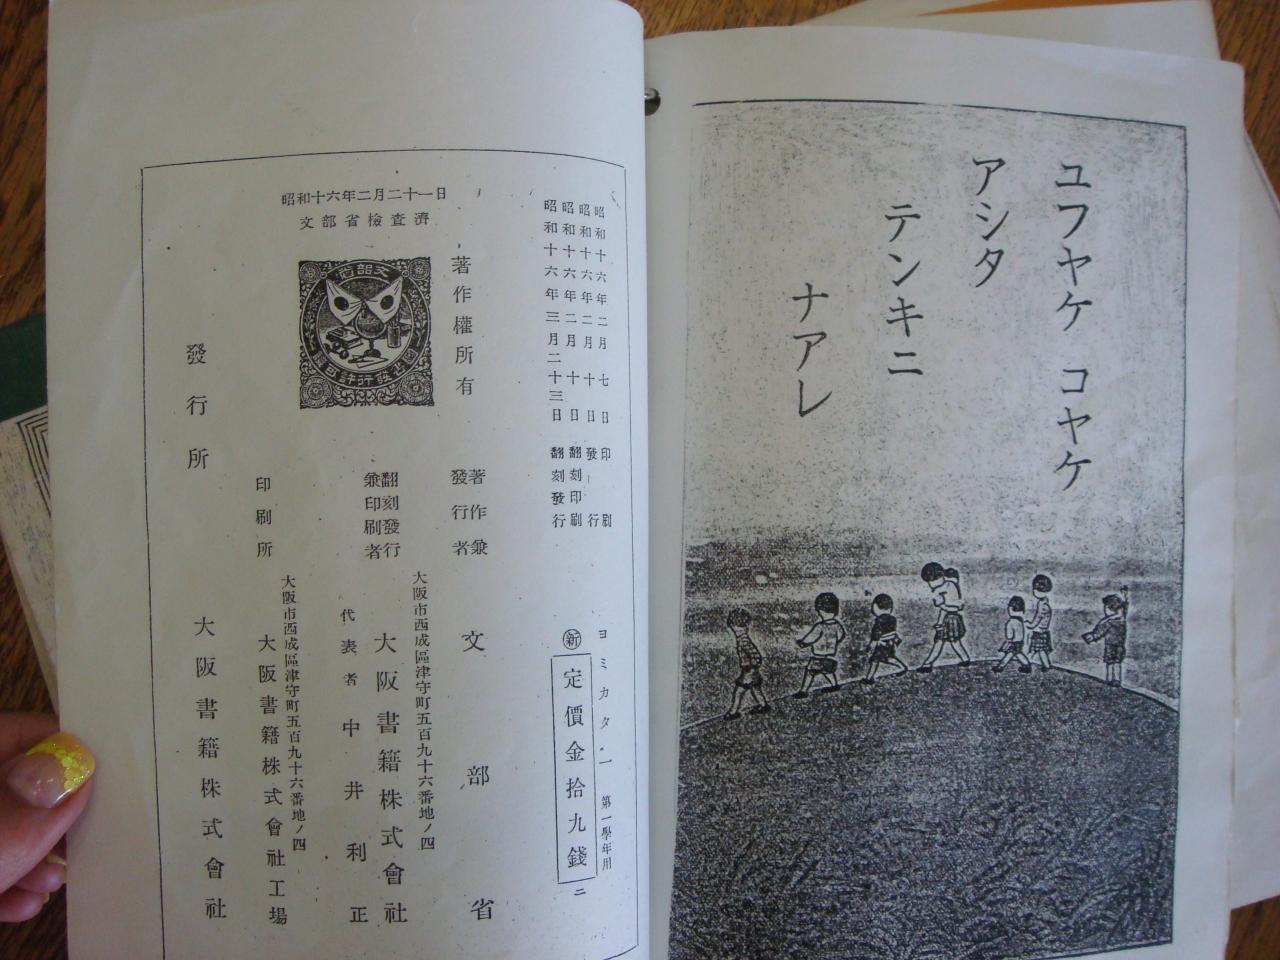 ユフヤケ コヤケ
アシタ
テンキニ
ナアレ
昭和十六年二月二十一日
文部省檢査濟
昭和十六年二月七日印刷
昭和十六年二月十日發行
昭和十六年二月十日翻刻印刷
昭和十六年三月二十三日翻刻發行
ヨミカタ 一 第一學年用
新 定價金拾九錢
二
著作權所有
著作兼發行者 文部省
大阪市西成區津守町五百九十六番地ノ四
翻刻發行兼印刷者 大阪書籍株式會社
代表者 中井利正
大阪市西成區津守町五百九十六番地ノ四
印刷所 大阪書籍株式會社工場
發行所 大阪書籍株式會社